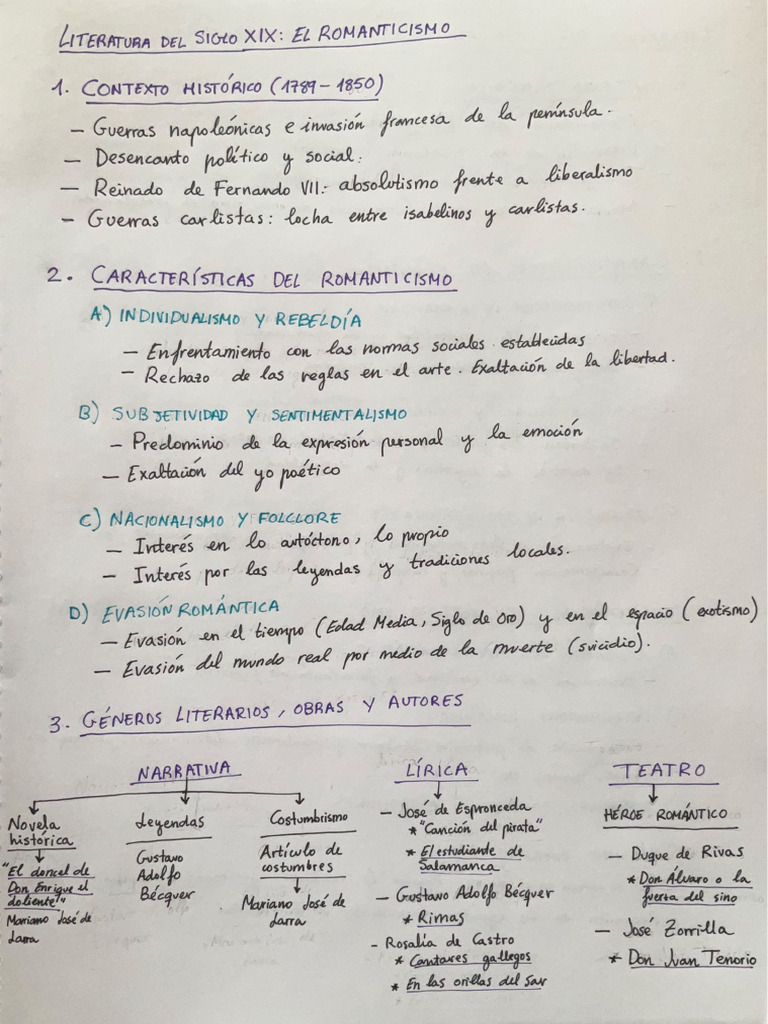 LITERATURA DEL SIGLO XIX: EL ROMANTICISMO
1. CONTEXTO HISTÓRICO (1789 – 1850)
– Guerras napoleónicas e invasión francesa de la península.
– Desencanto político y social.
– Reinado de Fernando VII: absolutismo frente a liberalismo
– Guerras carlistas: locha entre isabelinos y carlistas.
2. CARACTERÍSTICAS DEL ROMANTICISMO
A) INDIVIDUALISMO Y REBELDÍA
– Enfrentamiento con las normas sociales establecidas
– Rechazo de las reglas en el arte. Exaltación de la libertad.
B) SUBJETIVIDAD Y SENTIMENTALISMO
– Predominio de la expresión personal y la emoción
– Exaltación del yo poético
C) NACIONALISMO Y FOLCLORE
– Interés en lo autóctono, lo propio
– Interés por las leyendas y tradiciones locales.
D) EVASIÓN ROMÁNTICA
– Evasión en el tiempo (Edad Media, Siglo de Oro) y en el espacio (exotismo)
– Evasión del mundo real por medio de la muerte (suicidio).
3. GÉNEROS LITERARIOS, OBRAS Y AUTORES
NARRATIVA
Novela
histórica
"El doncel de
Don Enrique el
doliente"
Mariano José de
Larra
Leyendas
Gustavo
Adolfo
Bécquer
Costumbrismo
Artículo de
costumbres
Mariano José de
Larra
LÍRICA
– José de Espronceda
* "Canción del pirata"
* El estudiante de
Salamanca
– Gustavo Adolfo Bécquer
* Rimas
– Rosalía de Castro
* Cantares gallegos
* En las orillas del Sar
TEATRO
HÉROE ROMÁNTICO
– Duque de Rivas
* Don Álvaro o la
fuerza del sino
– José Zorrilla
* Don Juan Tenorio